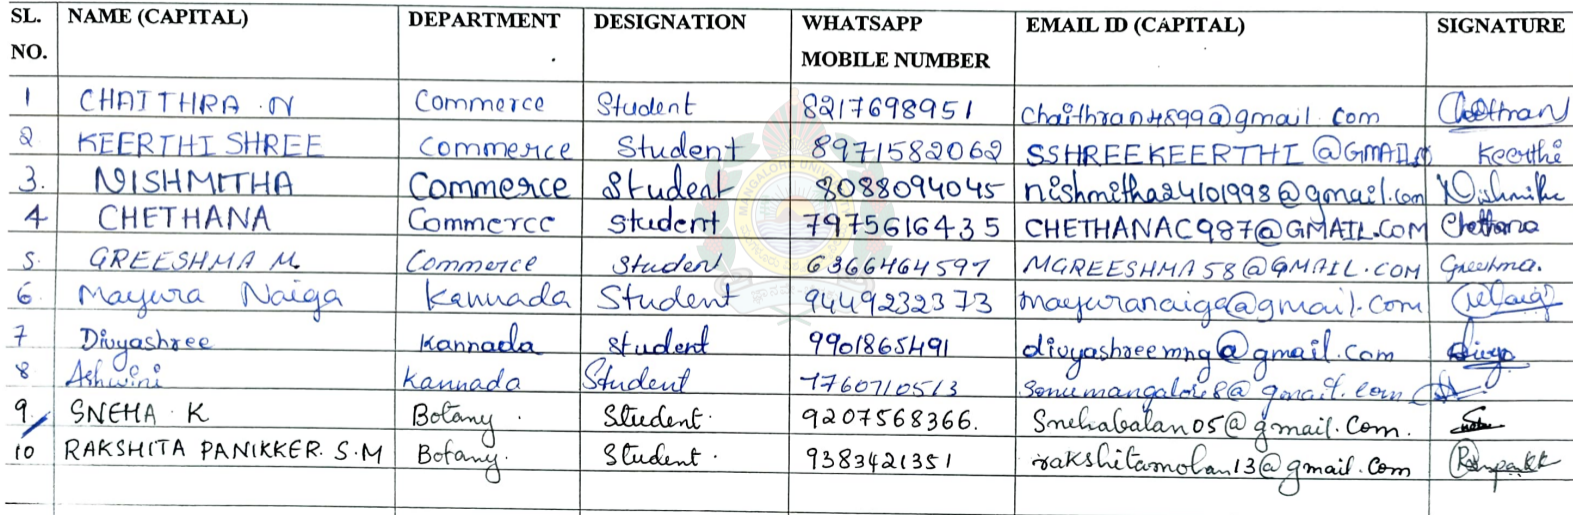 SL. NO. NAME (CAPITAL) DEPARTMENT DESIGNATION WHATSAPP MOBILE NUMBER EMAIL ID (CAPITAL) SIGNATURE
1 CHAITHRA .N Commerce Student 8217698951 chaithran4899@gmail.com
2 KEERTHI SHREE Commerce Student 8971582062 SSHREEKEERTHI@GMAIL. Keerthi
3. NISHMITHA Commerce Student 8088094045 nishmitha24101998@gmail.com Nishmitha
4 CHETHANA Commerce Student 7975616435 CHETHANAC987@GMAIL.COM Chethana
5. GREESHMA M. Commerce Student 6366464597 MGREESHMA58@GMAIL.COM Greeshma.
6. Mayura Naiga Kannada Student 9449232373 mayuranaiga@gmail.com
7 Divyashree Kannada Student 9901865491 divyashreemng@gmail.com Divya
8 Ashwini Kannada Student 7760710513
9. SNEHA K Botany. Student. 9207568366. Snehabalan05@gmail.Com.
10 RAKSHITA PANIKKER. S.M Botany. Student. 9383421351 rakshitamohan13@gmail.Com